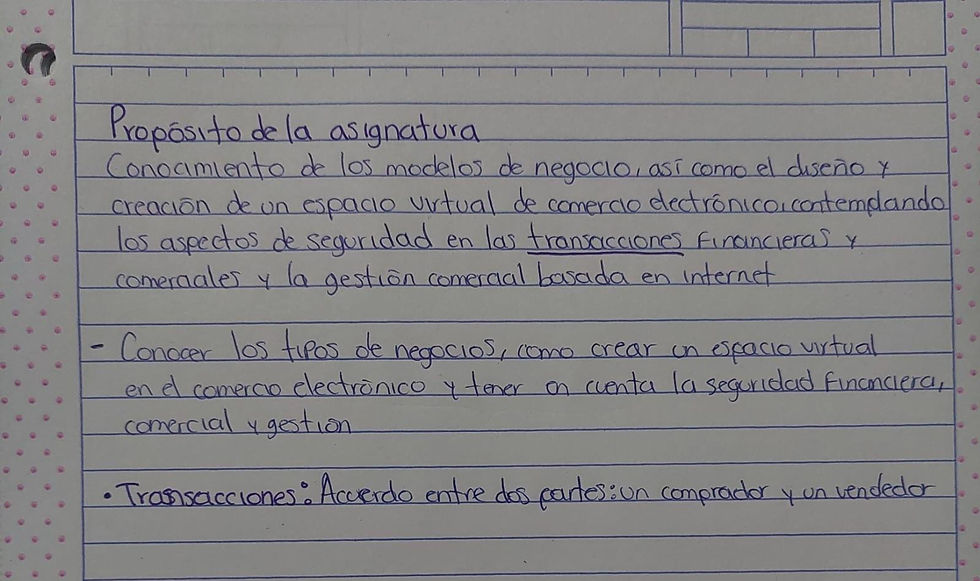 Propósito de la asignatura
Conocimiento de los modelos de negocio, así como el diseño y
creación de un espacio virtual de comercio electrónico, contemplando
los aspectos de seguridad en las transacciones financieras y
comerciales y la gestión comercial basada en internet
- Conocer los tipos de negocios, como crear un espacio virtual
en el comercio electrónico y tener en cuenta la seguridad financiera,
comercial y gestión
• Transacciones: Acuerdo entre dos partes: un comprador y un vendedor